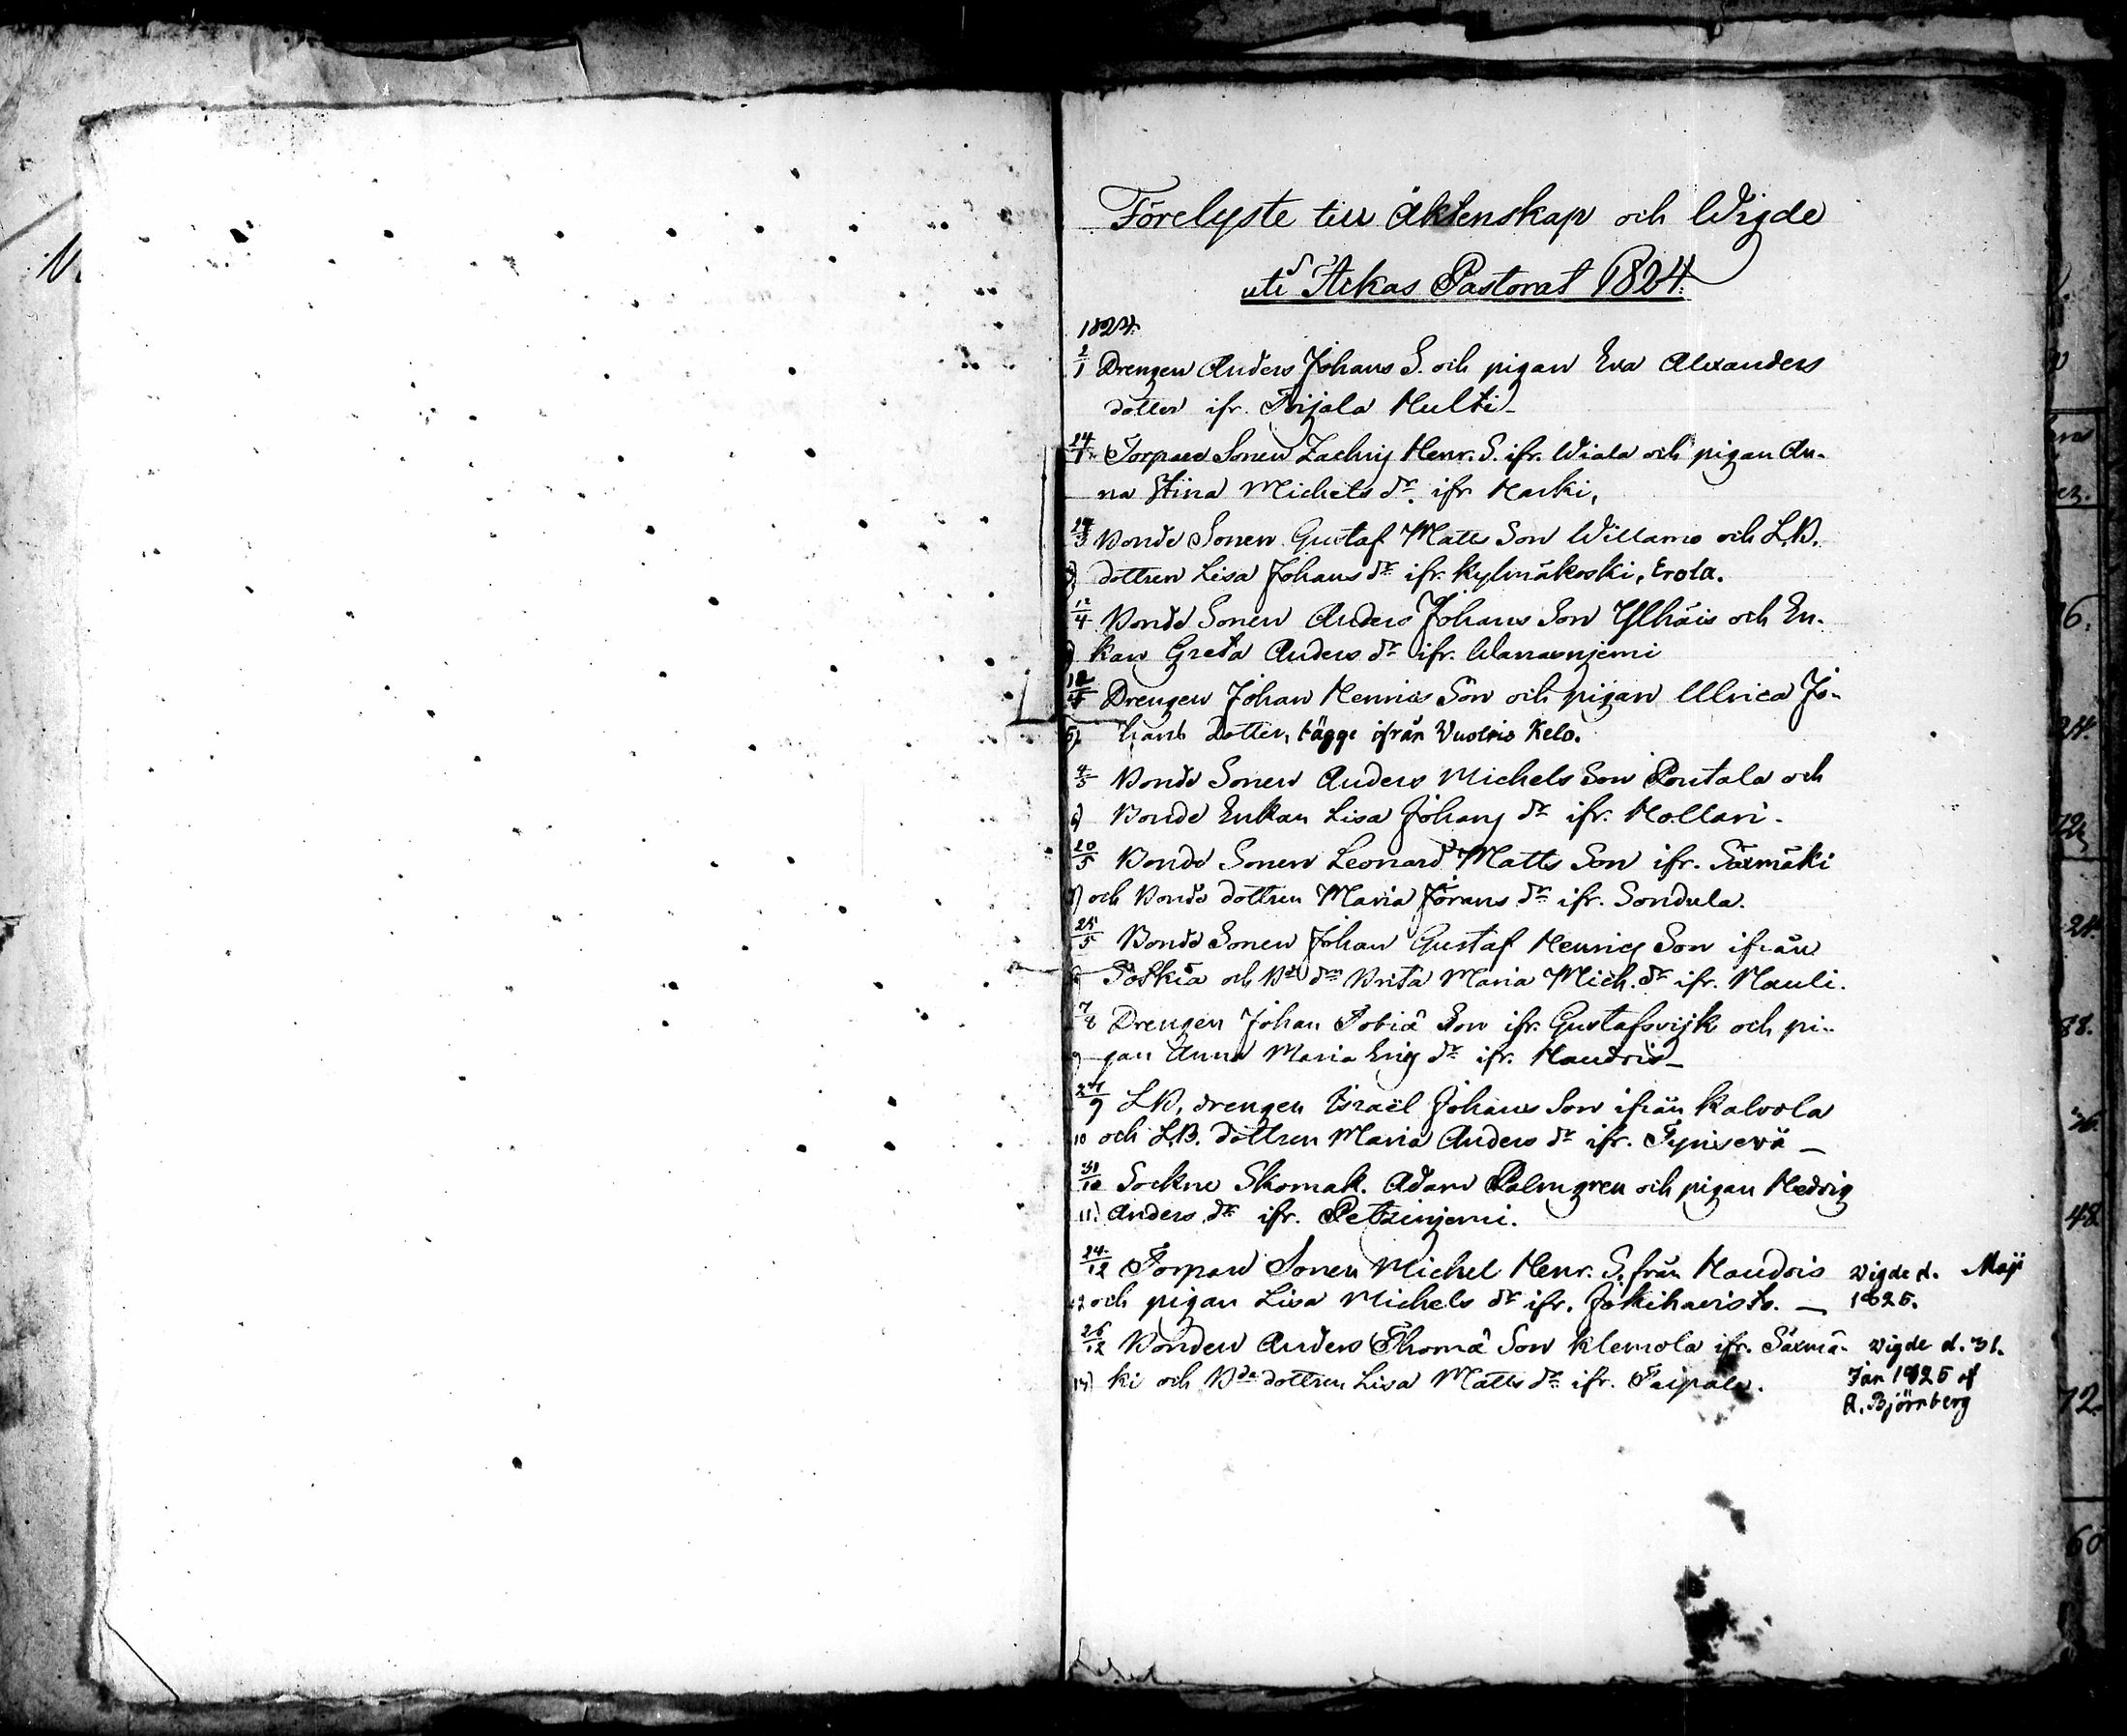 Förelyste till Äktenskap och Wigde
uti Ackas Pastorat 1824.
1824.
2/1 Drengen Anders Johans S. och pigan Eva Alexanders
dotter ifr. Toijala Hulti
24/1 Torpare Sonen Zachrij Henr. S. ifr. Wiala och pigan An-
na Stina Michels dr. ifr Harki,
24/3 Bonde Sonen Gustaf Matts Son Willamo och L.B.
3) dottren Lisa Johans dr ifr. Kylmäkoski, Erola.
12/4 Bonde Sonen Anders Johans Son Ylhäis och En-
kan Greta Anders dr ifr. Wanasnjemi
Drengen Johan Henrics Son och pigan Ulrica Jo-
5) hans dotter, bägge ifrån Vuolois Kelo.
4/5 Bonde Sonen Anders Michels Son Pontala och
6) Bonde Enkan Lisa Johans dr ifr. Mollari.
20/5 Bonde Sonen Leonard Matts Son ifr. Säxmäki
7) och Bonde dottren Maria Jörans dr ifr. Sondula.
25/5 Bonde Sonen Johan Gustaf Henrics Son ifrån
och Bde drn Brita Maria Mich. dr ifr. Nauli.
7/8 Drengen Johan Tobiæ Son ifr. Gustafsvijk och pi-
9) gan Anna Maria Eriq dr ifr. Haudois
24/9 L.B. drengen Israël Johans Son ifrån Kalvola
10 och L.B. dottren Maria Anders dr ifr. Tyrisevä
31/10 Sockne Skomak. Adam Palmgren och pigan Hedvig
11) Anders dr ifr. Petzinjemi.
24/12 Torpare Sonen Michel Henr. S. från Haudois wigde d. Maji
12 och pigan Lisa Michels dr ifr. Jokihavisto. 1825.
26/12 Bonden Anders Thomæ Son Klemola ifr. Säxmä- wigde d. 31.
13) ki och Bde dottren Lisa Matts dr ifr. Taipale. Jan 1825 af
A. Björnberg